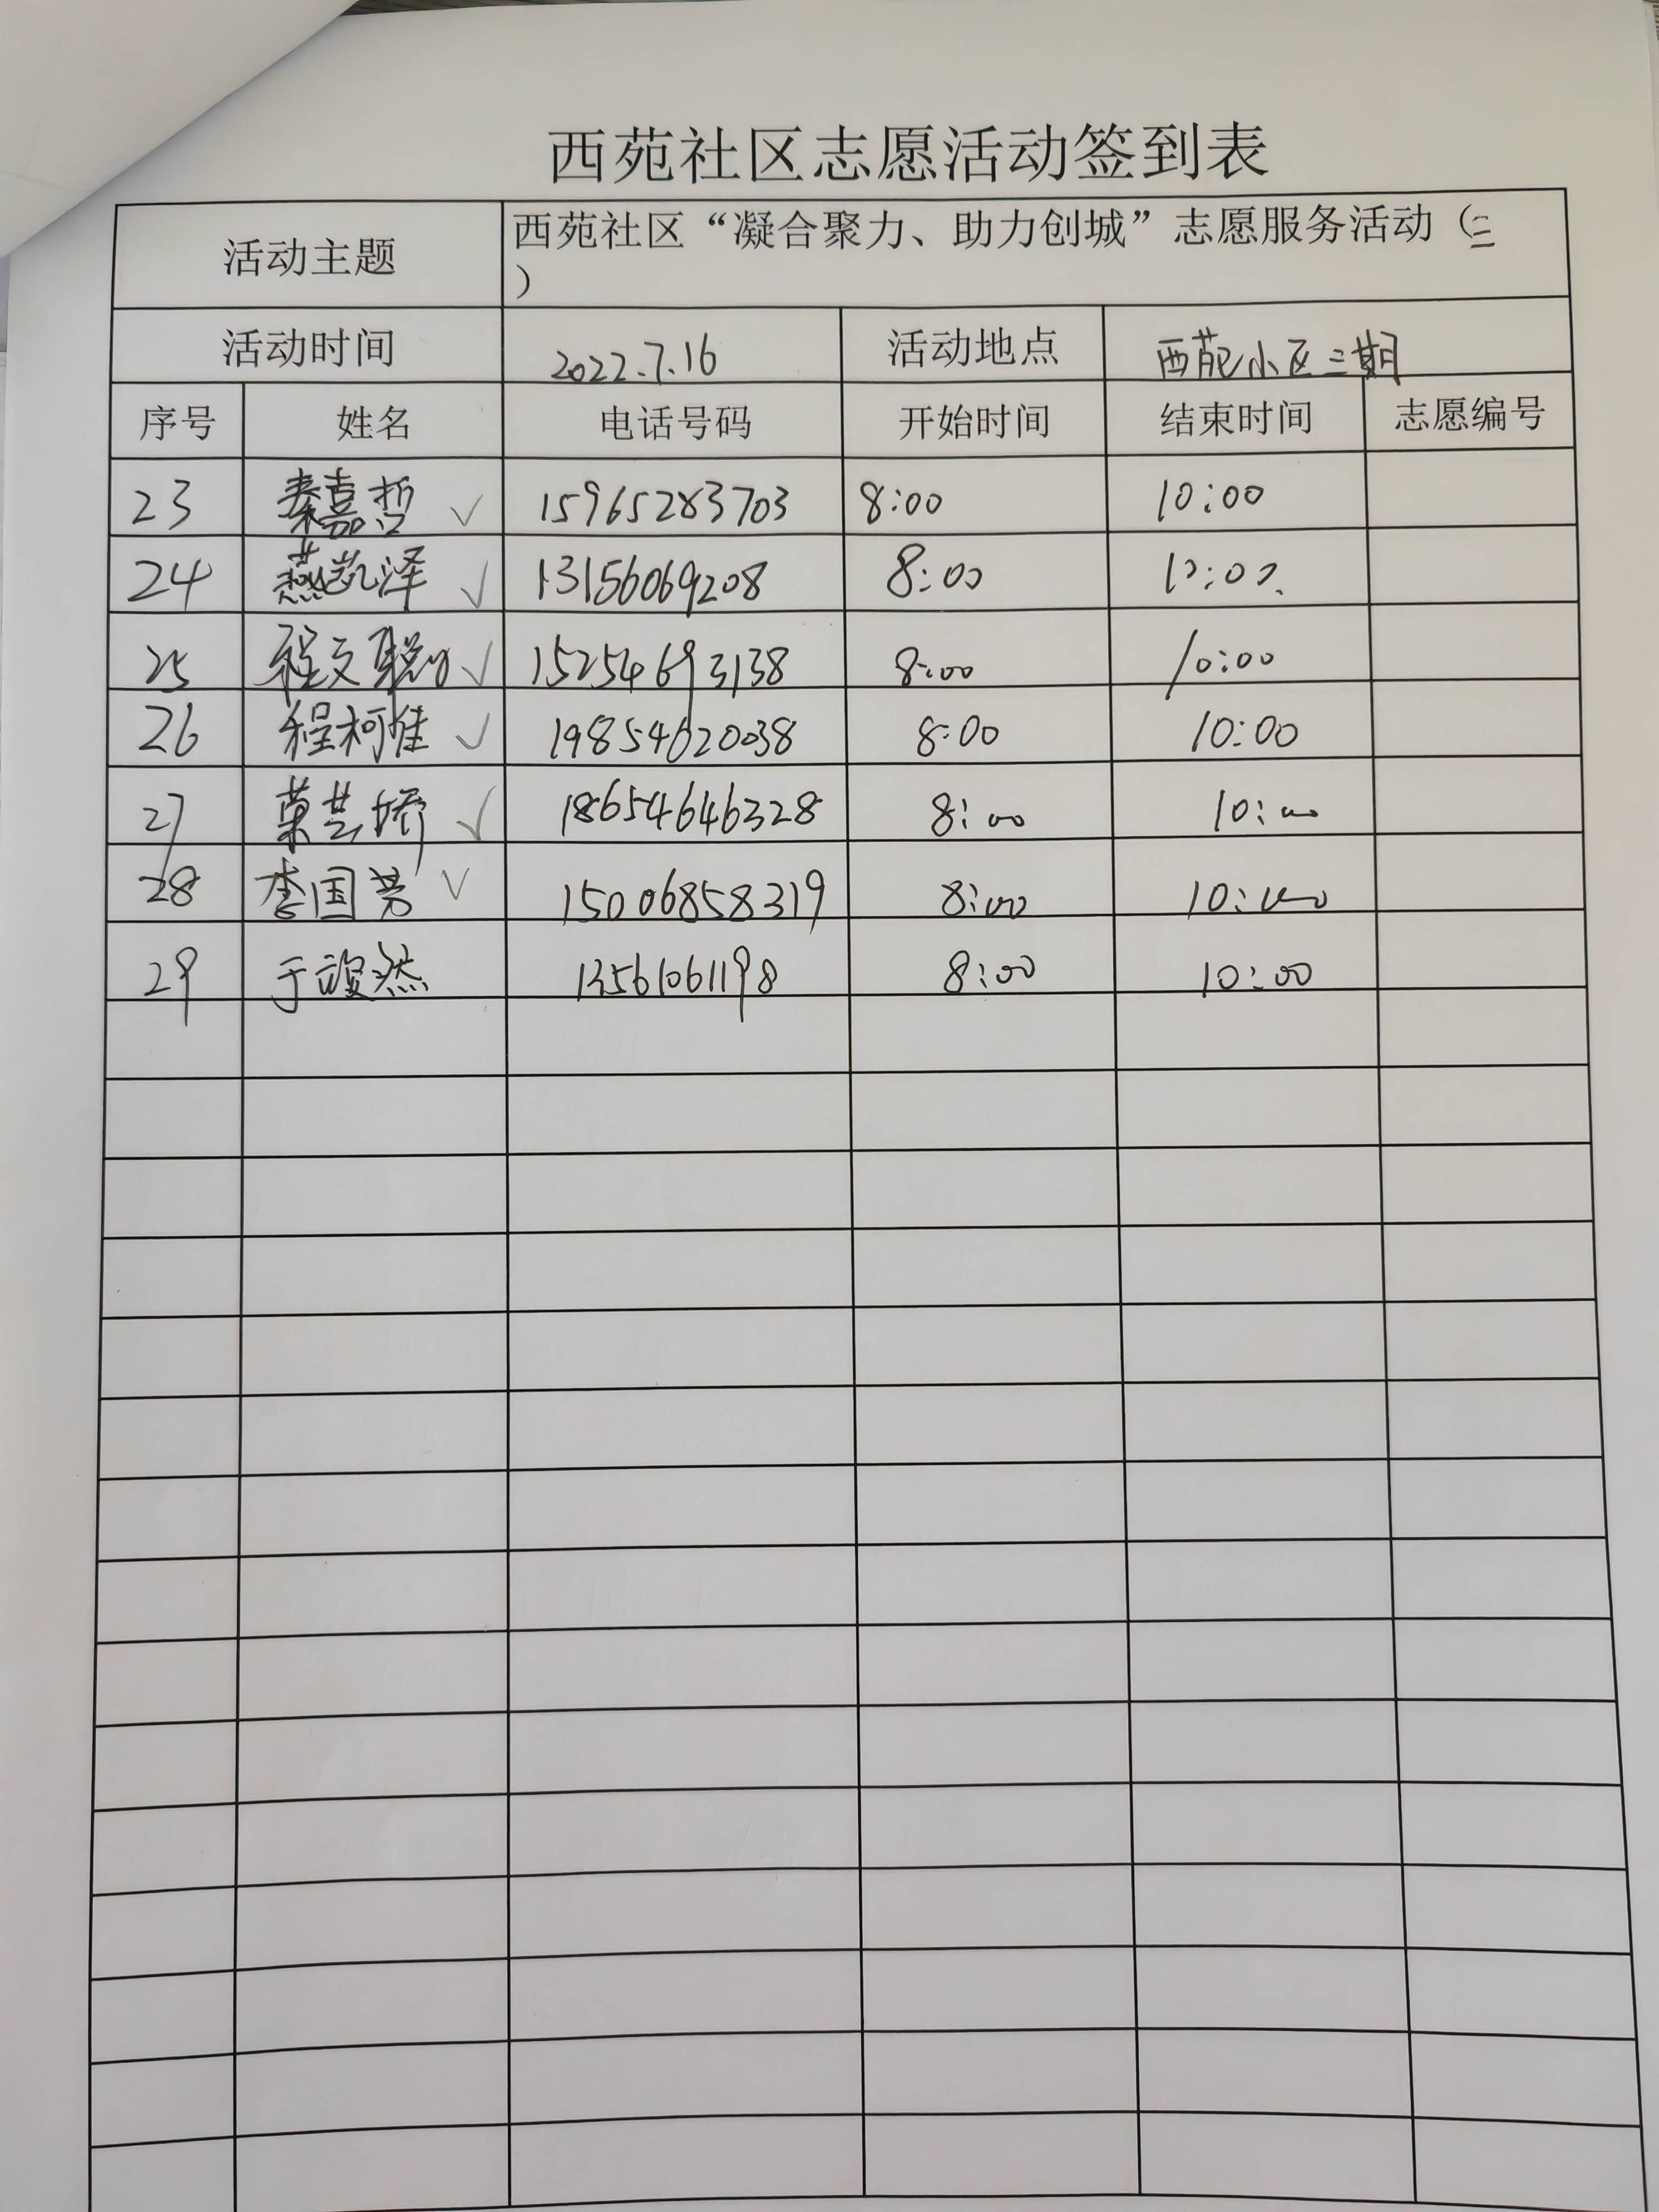 西苑社区志愿活动签到表
活动主题 西苑社区“凝合聚力、助力创城”志愿服务活动（三
）
活动时间 2022.7.16 活动地点 西苑小区三期
序号 姓名 电话号码 开始时间 结束时间 志愿编号
23 秦嘉哲 ✓ 15965283703 8:00 10:00
24 燕凯泽 ✓ 13156069208 8:00 10:00
25 程文聪 ✓ 15254693138 8:00 10:00
26 程柯佳 ✓ 19854620038 8:00 10:00
27 ✓ 18654646328 8:00 10:00
28 李国芳 ✓ 15006858319 8:00 10:00
29 13561061198 8:00 10:00